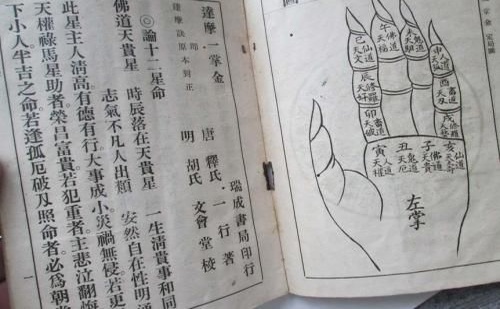 圖
巳仙道天文
午佛道天福
未鬼道天驛
申人道天孤
辰修羅天奸
酉畜道天刃
卯畜道天破
戌修羅天藝
寅人道天權
丑鬼道天厄
子佛道天貴
亥仙道天壽
左掌
瑞成書局印行
達摩一掌金 唐 釋氏 一行著
達摩訣原本對正 明 胡氏 文會堂校
◎論十二星命
佛道天貴星 時辰落在天貴星 一生清貴事和同
志氣不凡人出類 安然自在性明通
此星主人清高有德有行大事成小災禍無侵若更
天權祿馬星助者榮昌富貴若犯重者主悲泣翻悔
下小人半吉之命若逢孤厄破及照命者必為朝
一